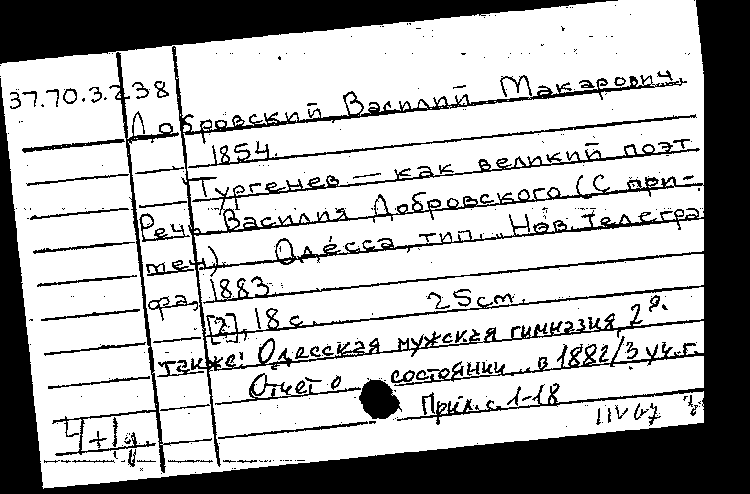 37.70.3.238
Добровский, Василий Макарович,
1854.
Тургенев — как великий поэт
Речь Василия Добровского (С при-
меч). Одесса, тип. „Нов. Телегра
фа, 1883.
[2], 18 с. 25 cm.
также: Одесская мужская гимназия, 2я.
Отчет о состоянии.. в 1882/3 уч. г.
Прил. с. 1-18
4+1д.